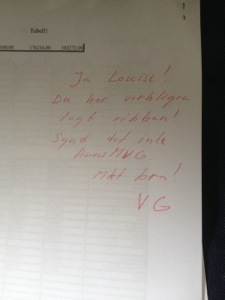 Tabell1
136216,00 103272,00
Ja Louise!
Du har verkligen
lagt ribban!
Synd det inte
finns MVG
Mkt bra!
VG